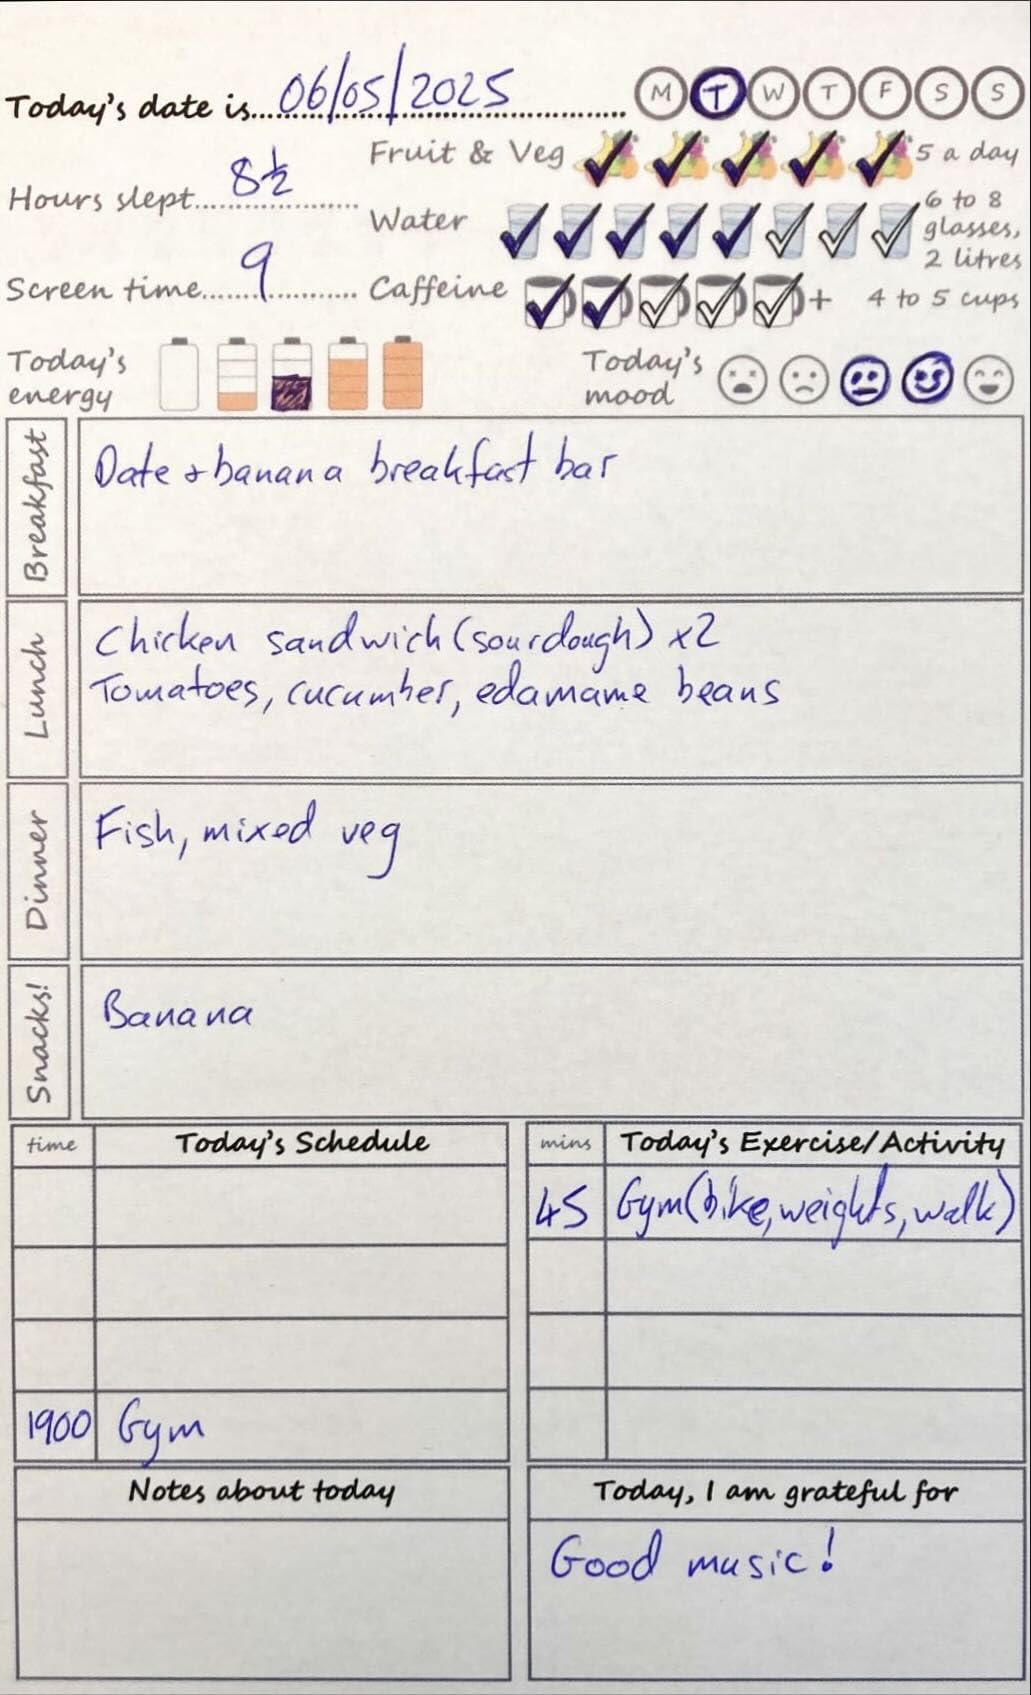 Today's date is 06/05/2025 M T W T F S S
Fruit & Veg 5 a day
Hours slept 8½
Water 6 to 8 glasses, 2 litres
Screen time 9
Caffeine + 4 to 5 cups
Today's energy
Today's mood
Breakfast
Date + banana breakfast bar
Lunch
Chicken sandwich (sourdough) x2
Tomatoes, cucumber, edamame beans
Dinner
Fish, mixed veg
Snacks!
Banana
time Today's Schedule
1900 Gym
mins Today's Exercise/Activity
45 Gym (bike, weights, walk)
Notes about today
Today, I am grateful for
Good music!